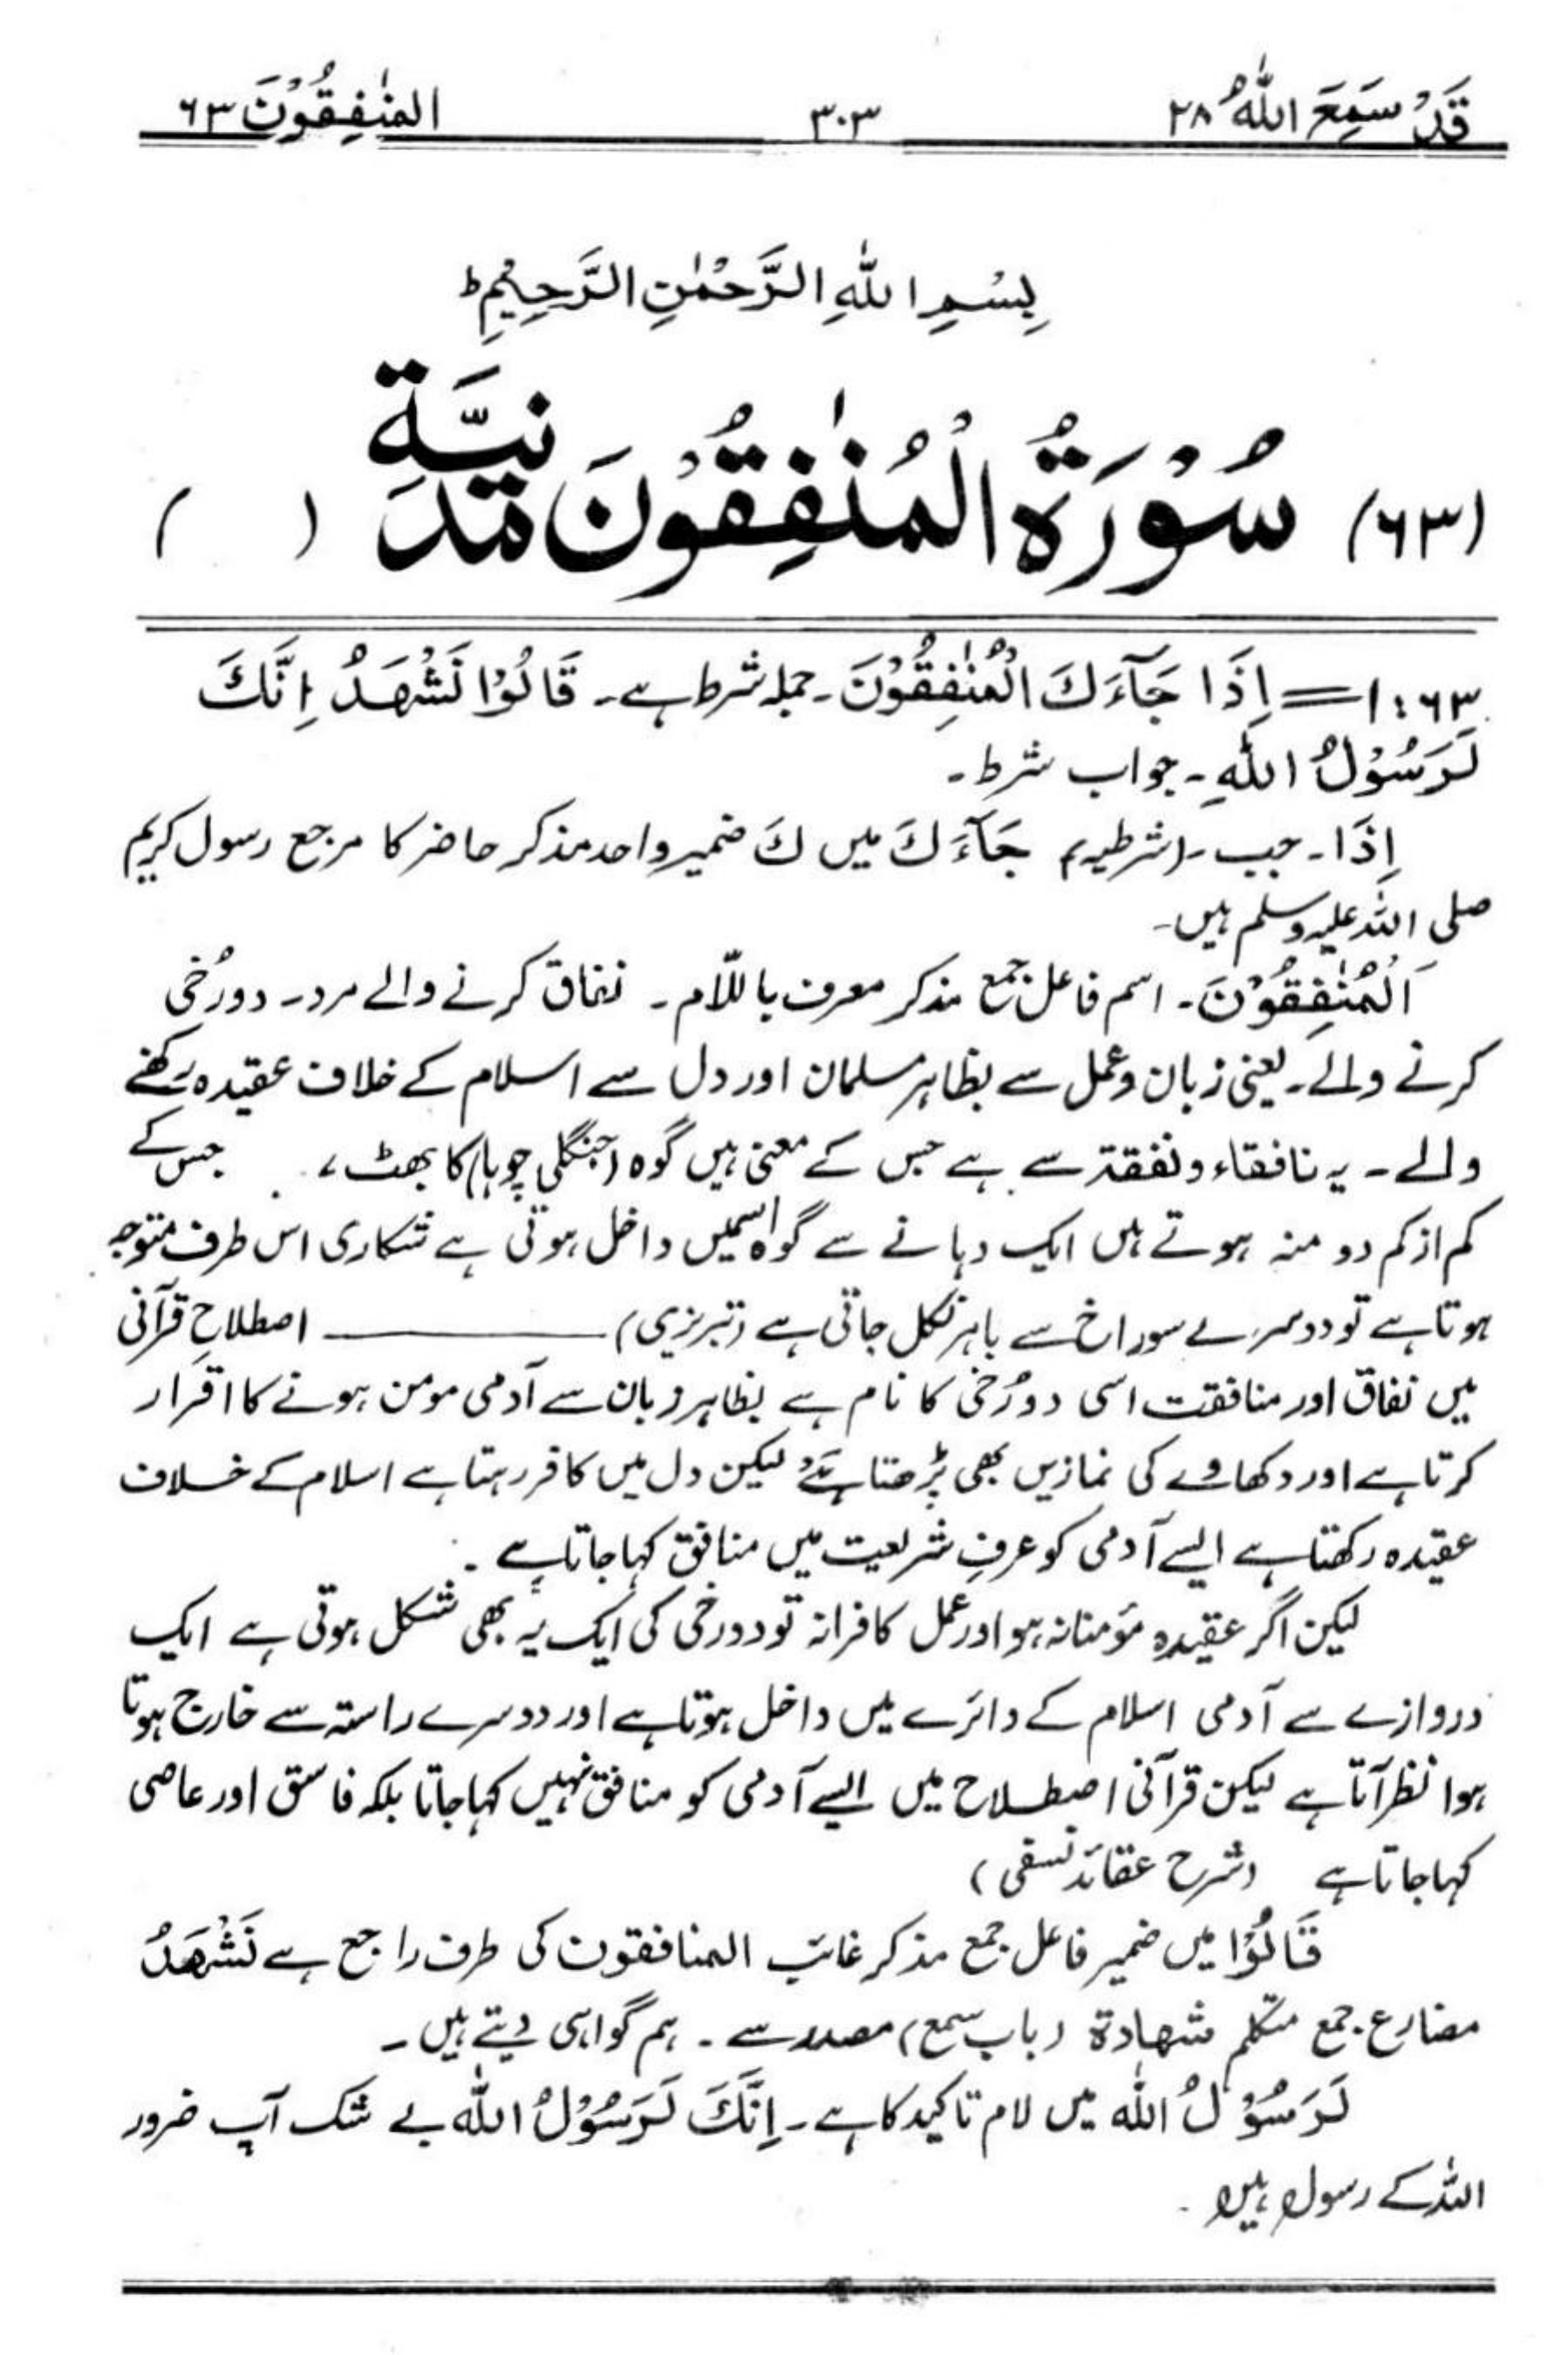 قَدْ سَمِعَ اللّٰهُ ۲۸ ۳۰۳ المنٰفِقُوْنَ ۶۳
بِسْمِ اللّٰهِ الرَّحْمٰنِ الرَّحِيْمِ ط
(۶۳) سُوْرَةُ الْمُنٰفِقُوْنَ مَدَنِيَّة ( )
۶۳: ۱ = اِذَا جَآءَكَ الْمُنٰفِقُوْنَ۔ جملہ شرط ہے۔ قَالُوْا نَشْهَدُ اِنَّكَ
لَرَسُوْلُ اللّٰهِ۔ جواب شرط۔
اِذَا۔ جب۔ (شرطیہ) جَآءَكَ میں كَ ضمیر واحد مذکر حاضر کا مرجع رسول کریم
صلی اللہ علیہ وسلم ہیں۔
اَلْمُنٰفِقُوْنَ۔ اسم فاعل جمع مذکر معرف باللّام۔ نفاق کرنے والے مرد۔ دورُخی
کرنے والے۔ یعنی زبان وعمل سے بظاہر مسلمان اور دل سے اسلام کے خلاف عقیدہ رکھنے
والے۔ یہ نافقاء ونفقة سے ہے جس کے معنی ہیں گوہ (جنگلی چوہا) کا بھٹ، جس کے
کم از کم دو منہ ہوتے ہیں ایک دہانے سے گوہ اسمیں داخل ہوتی ہے شکاری اس طرف متوجہ
ہوتا ہے تو دوسرے سوراخ سے باہر نکل جاتی ہے (تبریزی) ـــــــــ اصطلاحِ قرآنی
میں نفاق اور منافقت اسی دورُخی کا نام ہے بظاہر زبان سے آدمی مومن ہونے کا اقرار
کرتا ہے اور دکھاوے کی نمازیں بھی پڑھتا ہے لیکن دل میں کافر رہتا ہے اسلام کے خلاف
عقیدہ رکھتا ہے ایسے آدمی کو عرفِ شریعت میں منافق کہا جاتا ہے۔
لیکن اگر عقیدہ مؤمنانہ ہو اور عمل کافرانہ تو دورخی کی ایک یہ بھی شکل ہوتی ہے ایک
دروازے سے آدمی اسلام کے دائرے میں داخل ہوتا ہے اور دوسرے راستہ سے خارج ہوتا
ہوا نظر آتا ہے لیکن قرآنی اصطلاح میں ایسے آدمی کو منافق نہیں کہا جاتا بلکہ فاسق اور عاصی
کہا جاتا ہے (شرح عقائد نسفی)
قَالُوْا میں ضمیر فاعل جمع مذکر غائب المنافقون کی طرف راجع ہے نَشْهَدُ
مضارع جمع متکلم شهادة (باب سمع) مصدر سے۔ ہم گواہی دیتے ہیں۔
لَرَسُوْلُ اللّٰه میں لام تاکید کا ہے۔ اِنَّكَ لَرَسُوْلُ اللّٰه بے شک آپ ضرور
اللہ کے رسول ہیں۔